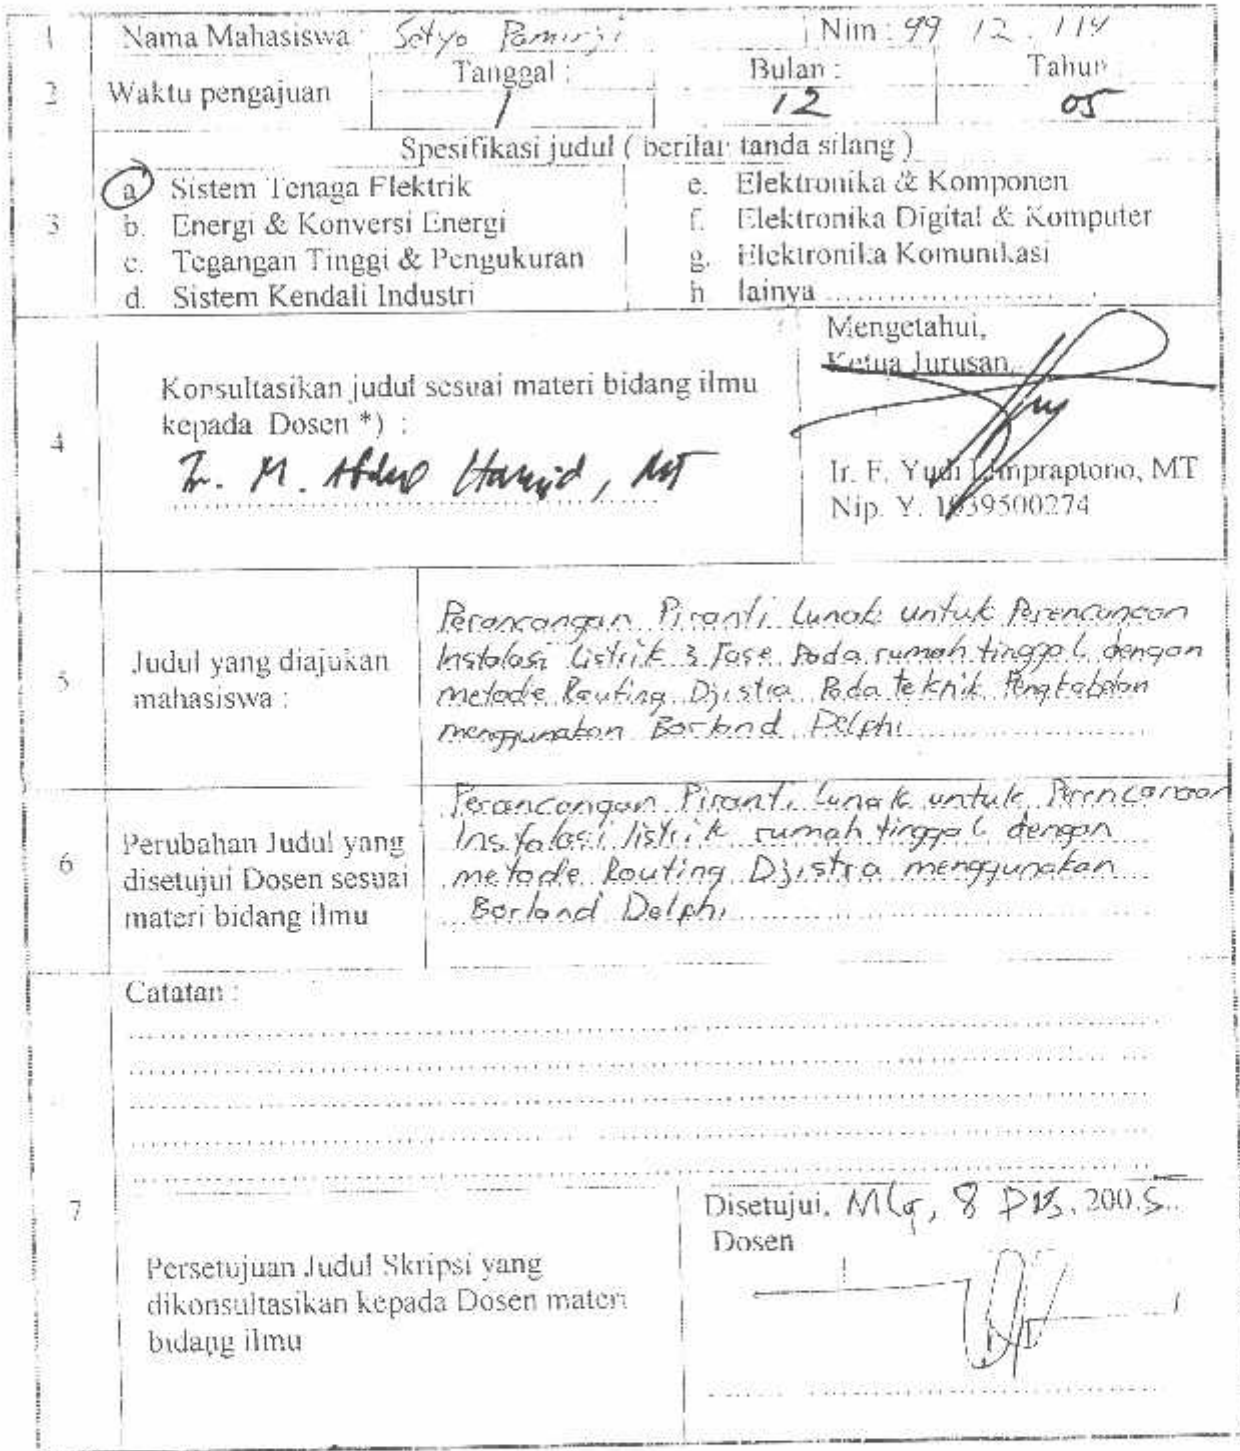 1 Nama Mahasiswa : Setyo Pamuji Nim : 99 12 . 114
2 Waktu pengajuan Tanggal : Bulan : Tahun
1 12 05
Spesifikasi judul ( berilah tanda silang )
3
a. Sistem Tenaga Elektrik
b. Energi & Konversi Energi
c. Tegangan Tinggi & Pengukuran
d. Sistem Kendali Industri
e. Elektronika & Komponen
f. Elektronika Digital & Komputer
g. Elektronika Komunikasi
h lainya ..........................
4
Konsultasikan judul sesuai materi bidang ilmu
kepada Dosen *) :
Ir. M. Abdul Hamid, MT
Mengetahui,
Ketua Jurusan,
Ir. F. Yudi Limpraptono, MT
Nip. Y. 1039500274
5
Judul yang diajukan
mahasiswa :
Perancangan Piranti Lunak untuk Perencanaan
Instalasi Listrik 3 Fase Pada rumah tinggal dengan
metode Routing Djistra Pada teknik Pengkabelan
menggunakan Borland Delphi
6
Perubahan Judul yang
disetujui Dosen sesuai
materi bidang ilmu
Perancangan Piranti Lunak untuk Perencanaan
Instalasi listrik rumah tinggal dengan
metode Routing Djistra menggunakan
Borland Delphi
Catatan :
7
Persetujuan Judul Skripsi yang
dikonsultasikan kepada Dosen materi
bidang ilmu
Disetujui, Mlg, 8 Des. 2005
Dosen